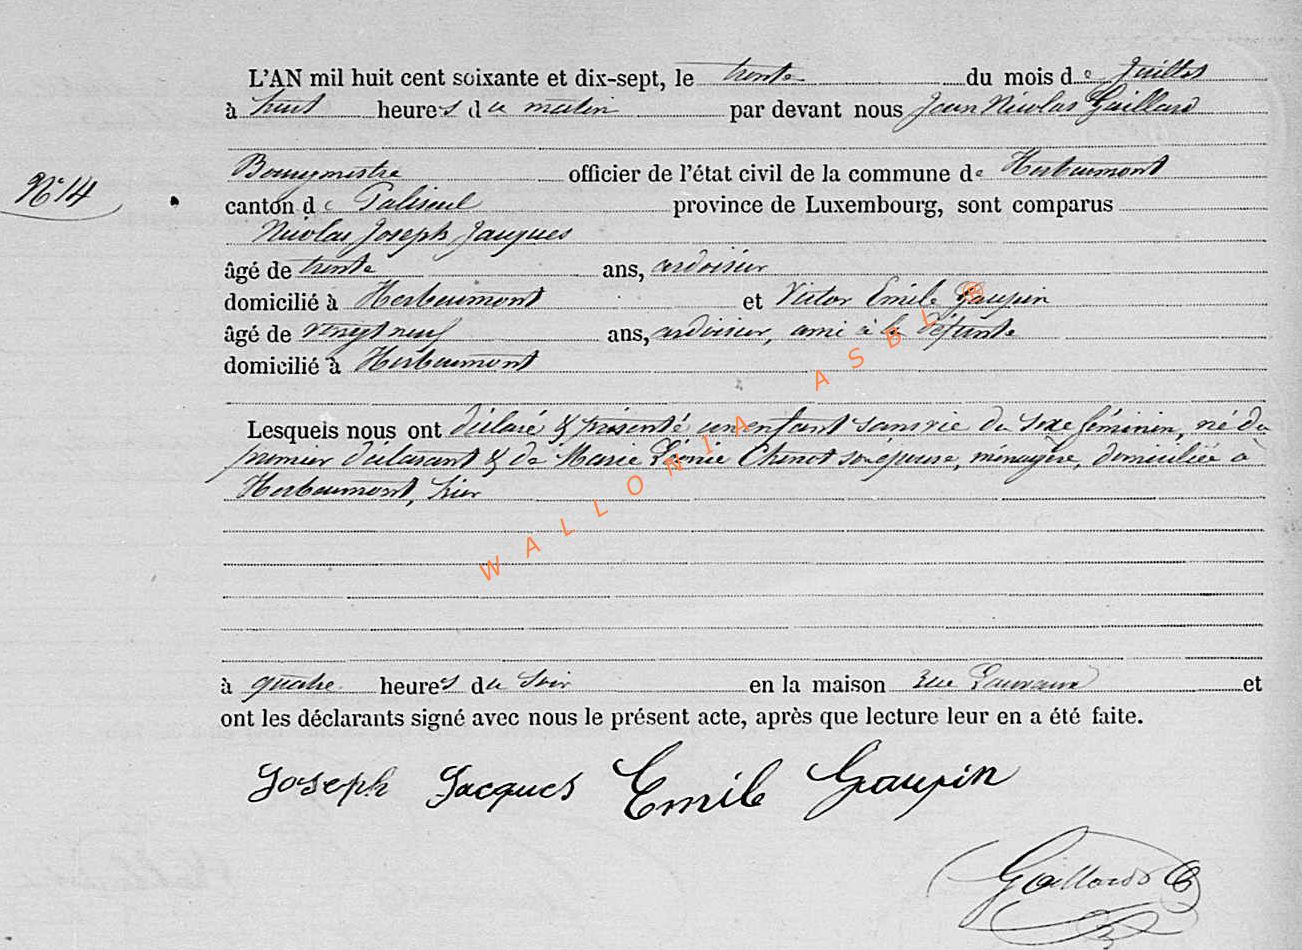 L'AN mil huit cent soixante et dix-sept, le trente du mois de Juillet
à huit heures du matin par devant nous Jean Nicolas Gaillard
Bourgmestre officier de l'état civil de la commune de Herbeumont
N° 14
canton de Paliseul province de Luxembourg, sont comparus
Nicolas Joseph Jacques
âgé de trente ans, ardoisier
domicilié à Herbeumont et Victor Emile Gaupin
âgé de vingt neuf ans, ardoisier, ami à la défunte
domicilié à Herbeumont
Lesquels nous ont déclaré & présenté un enfant sans vie du sexe féminin, né du
premier déclarant & de Marie Léonie Chenot son épouse, ménagère, domiciliée à
Herbeumont, hier
WALLONIA ASBL
à quatre heures du soir en la maison rue et
ont les déclarants signé avec nous le présent acte, après que lecture leur en a été faite.
Joseph Jacques Emile Gaupin
Gaillard